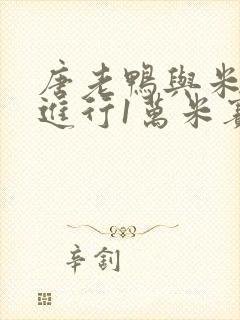 唐老鴨與米
進行1萬米賽
辛劄